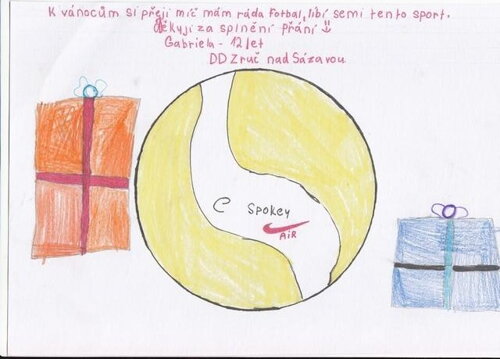 K vánocům si přeji míč mám ráda Fotbal, líbí semi tento sport.
Děkyji za splnění přání
Gabriela - 12 let
DD Zruč nad Sázavou
Spokey
AIR